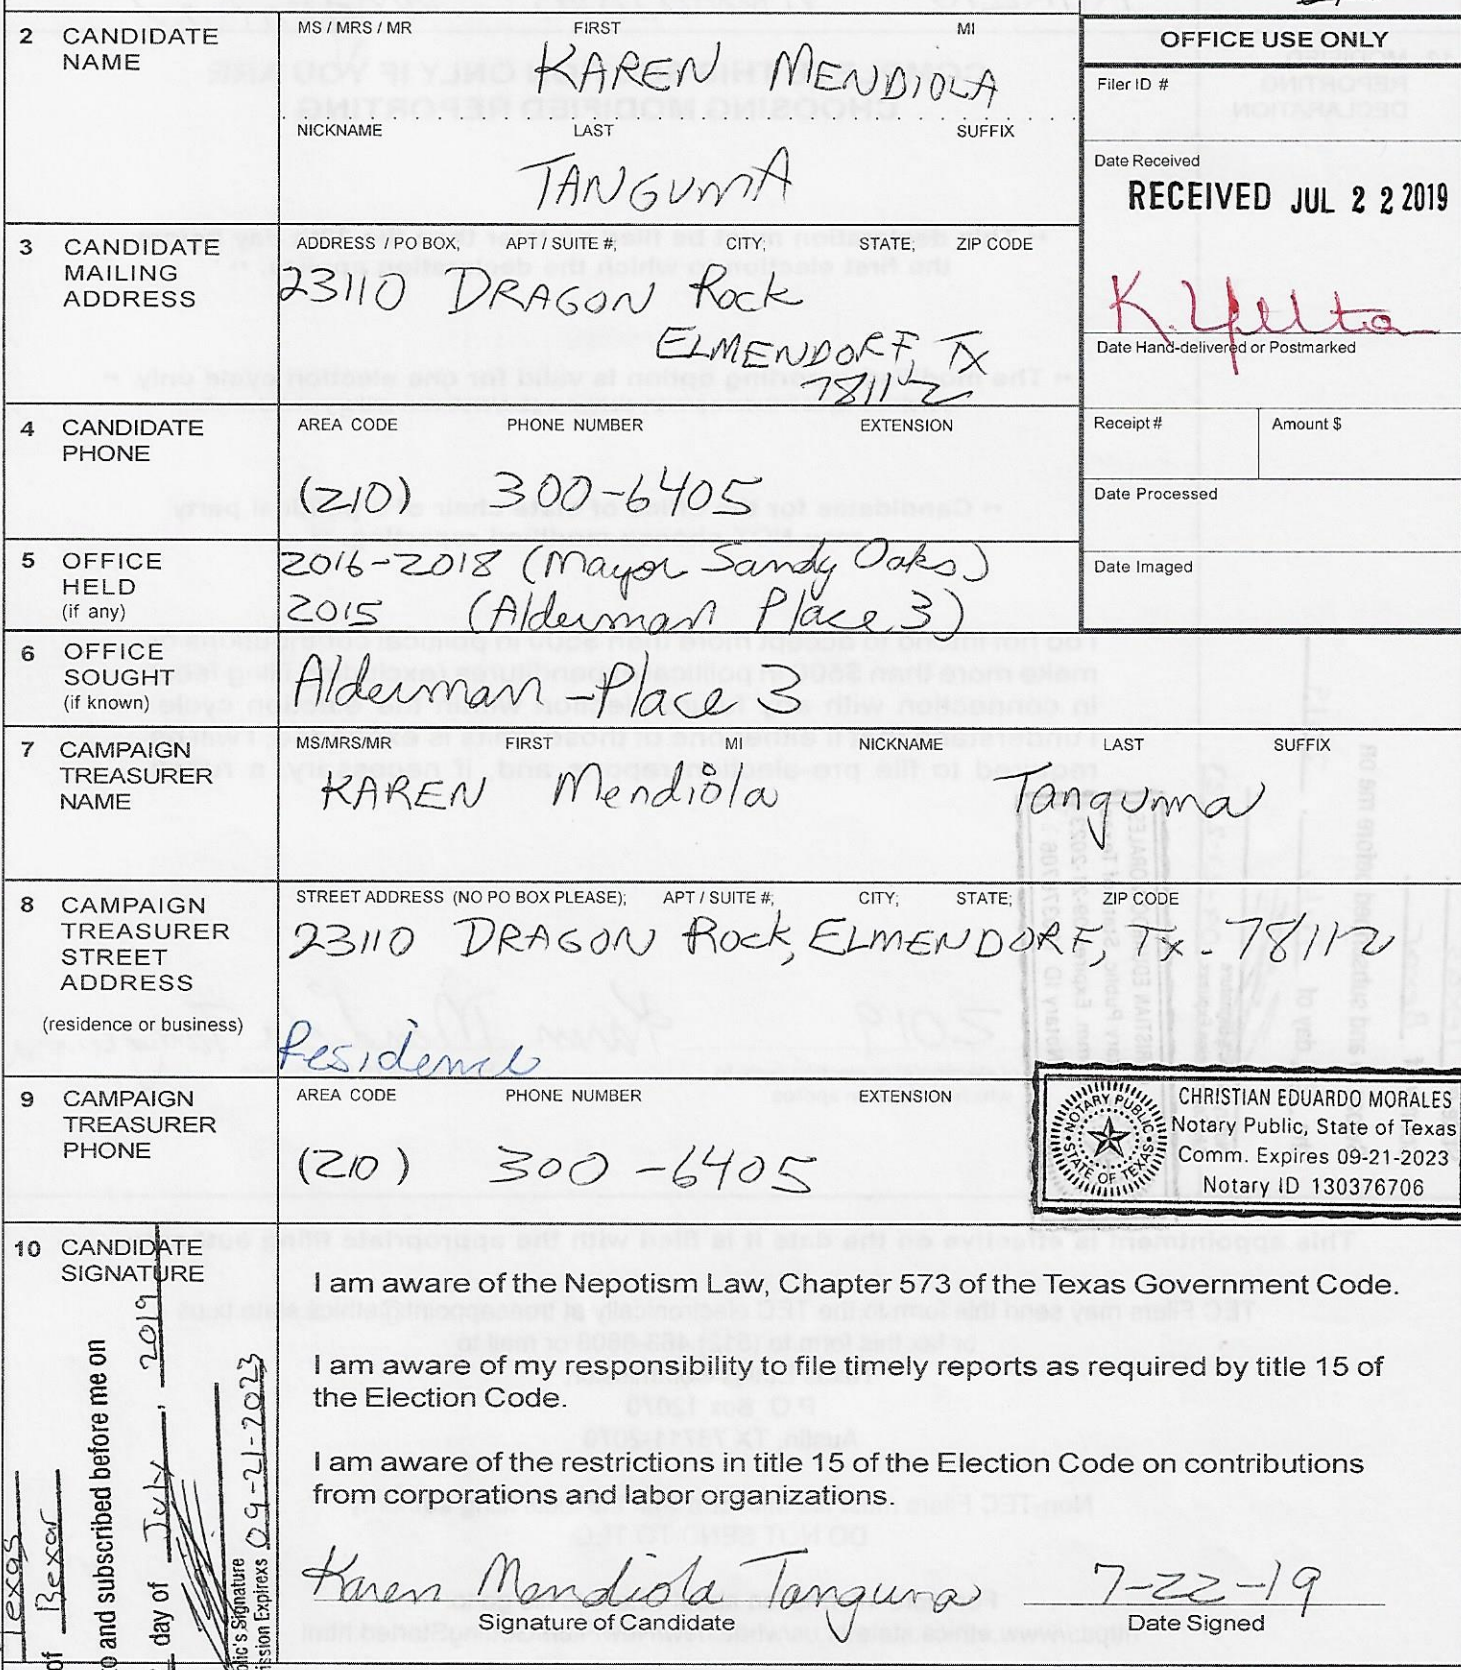 2 CANDIDATE NAME
MS / MRS / MR FIRST MI
KAREN MENDIOLA
NICKNAME LAST SUFFIX
TANGUMA
OFFICE USE ONLY
Filer ID #
Date Received
RECEIVED JUL 2 2 2019
Date Hand-delivered or Postmarked
Receipt # Amount $
Date Processed
Date Imaged
3 CANDIDATE MAILING ADDRESS
ADDRESS / PO BOX; APT / SUITE #; CITY; STATE; ZIP CODE
23110 DRAGON Rock
ELMENDORF, TX
78112
4 CANDIDATE PHONE
AREA CODE PHONE NUMBER EXTENSION
(210) 300-6405
5 OFFICE HELD (if any)
2016-2018 (Mayor Sandy Oaks)
2015 (Alderman Place 3)
6 OFFICE SOUGHT (if known)
Alderman - Place 3
7 CAMPAIGN TREASURER NAME
MS/MRS/MR FIRST MI NICKNAME LAST SUFFIX
KAREN Mendiola Tanguma
8 CAMPAIGN TREASURER STREET ADDRESS
(residence or business)
STREET ADDRESS (NO PO BOX PLEASE); APT / SUITE #; CITY; STATE; ZIP CODE
23110 DRAGON Rock, ELMENDORF, Tx. 78112
Residence
9 CAMPAIGN TREASURER PHONE
AREA CODE PHONE NUMBER EXTENSION
(210) 300-6405
CHRISTIAN EDUARDO MORALES
Notary Public, State of Texas
Comm. Expires 09-21-2023
Notary ID 130376706
NOTARY PUBLIC
STATE OF TEXAS
10 CANDIDATE SIGNATURE
I am aware of the Nepotism Law, Chapter 573 of the Texas Government Code.
I am aware of my responsibility to file timely reports as required by title 15 of
the Election Code.
I am aware of the restrictions in title 15 of the Election Code on contributions
from corporations and labor organizations.
Karen Mendiola Tanguma 7-22-19
Signature of Candidate Date Signed
Texas
of Bexar
and subscribed before me on
day of July, 2019
Signature
Expires 09-21-2023